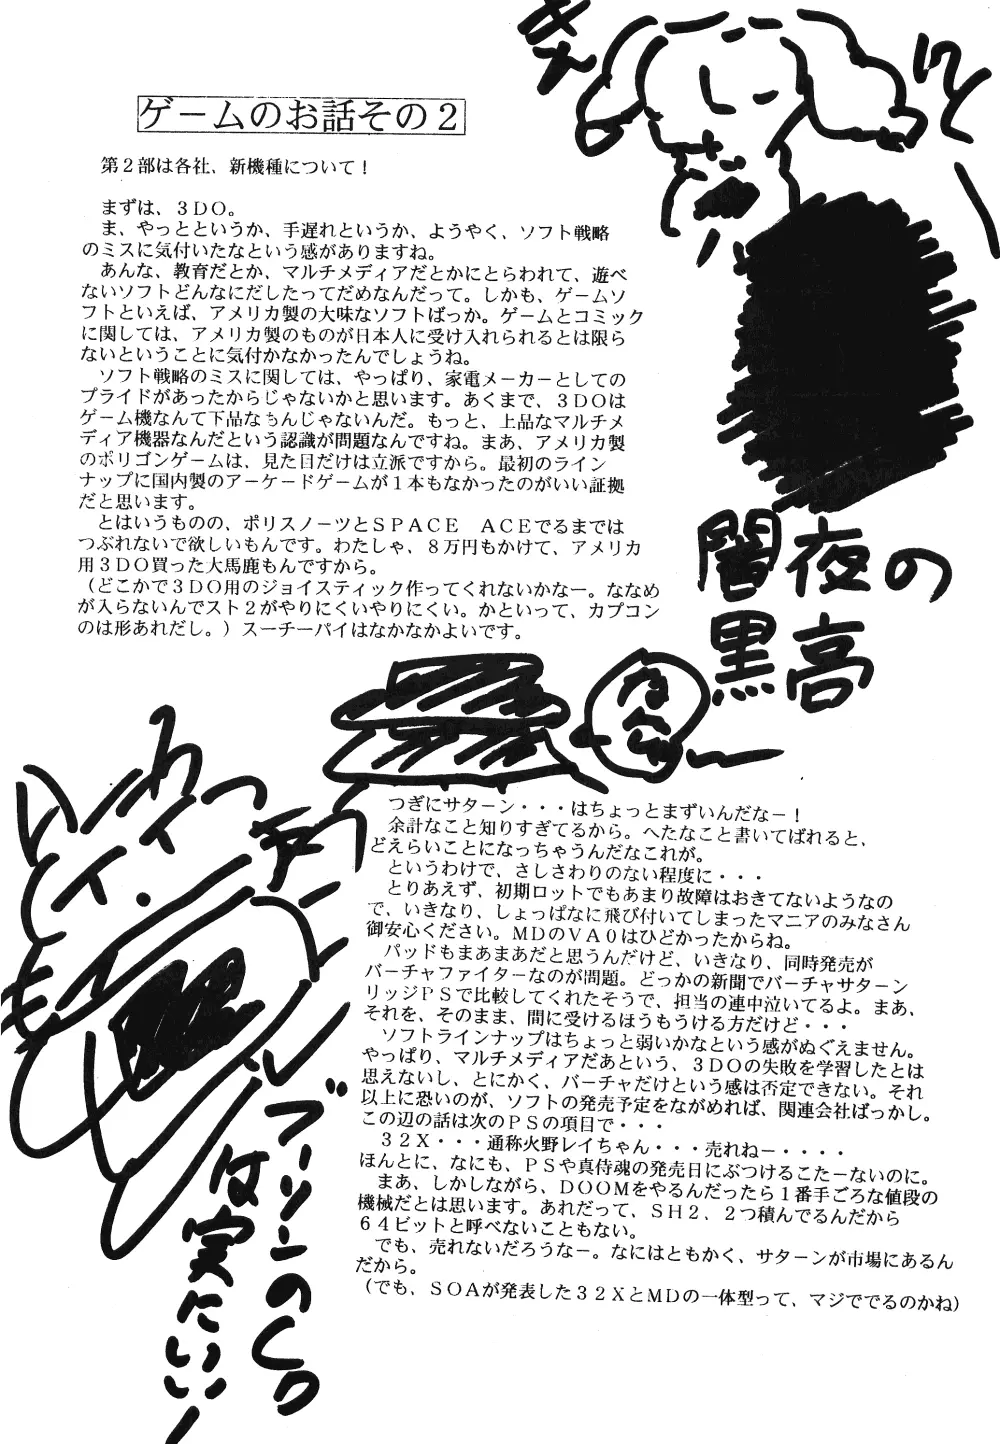 ゲームのお話その2
第2部は各社、新機種について!
まずは、3DO。
ま、やっとというか、手遅れというか、ようやく、ソフト戦略
のミスに気付いたなという感がありますね。
あんな、教育だとか、マルチメディアだとかにとらわれて、遊べ
ないソフトどんなにだしたってだめなんだって。しかも、ゲームソ
フトといえば、アメリカ製の大味なソフトばっか。ゲームとコミック
に関しては、アメリカ製のものが日本人に受け入れられるとは限ら
ないということに気付かなかったんでしょうね。
ソフト戦略のミスに関しては、やっぱり、家電メーカーとしての
プライドがあったからじゃないかと思います。あくまで、3DOは
ゲーム機なんて下品なもんじゃないんだ。もっと、上品なマルチメ
ディア機器なんだという認識が問題なんですね。まあ、アメリカ製
のポリゴンゲームは、見た目だけは立派ですから。最初のライン
ナップに国内製のアーケードゲームが1本もなかったのがいい証拠
だと思います。
とはいうものの、ポリスノーツとSPACE ACEでるまでは
つぶれないで欲しいもんです。わたしゃ、8万円もかけて、アメリカ
用3DO買った大馬鹿もんですから。
(どこかで3DO用のジョイスティック作ってくれないかなー。ななめ
が入らないんでスト2がやりにくいやりにくい。かといって、カプコン
のは形あれだし。)スーチーパイはなかなかよいです。
闇夜の
黒高
つぎにサターン・・・はちょっとまずいんだなー!
余計なこと知りすぎてるから。へたなこと書いてばれると、
どえらいことになっちゃうんだなこれが。
というわけで、さしさわりのない程度に・・・
とりあえず、初期ロットでもあまり故障はおきてないようなの
で、いきなり、しょっぱなに飛び付いてしまったマニアのみなさん
御安心ください。MDのVA0はひどかったからね。
パッドもまあまあだと思うんだけど、いきなり、同時発売が
バーチャファイターなのが問題。どっかの新聞でバーチャサターン
リッジPSで比較してくれたそうで、担当の連中泣いてるよ。まあ、
それを、そのまま、間に受けるほうもうける方だけど・・・
ソフトラインナップはちょっと弱いかなという感がぬぐえません。
やっぱり、マルチメディアだあという、3DOの失敗を学習したとは
思えないし、とにかく、バーチャだけという感は否定できない。それ
以上に恐いのが、ソフトの発売予定をながめれば、関連会社ばっかし。
この辺の話は次のPSの項目で・・・
32X・・・通称火野レイちゃん・・・売れねー・・・・
ほんとに、なにも、PSや真侍魂の発売日にぶつけるこたーないのに。
まあ、しかしながら、DOOMをやるんだったら1番手ごろな値段の
機械だとは思います。あれだって、SH2、2つ積んでるんだから
64ビットと呼べないこともない。
でも、売れないだろうなー。なにはともかく、サターンが市場にあるん
だから。
(でも、SOAが発表した32XとMDの一体型って、マジででるのかね)
ブーツリンのくつ
は実にいい!